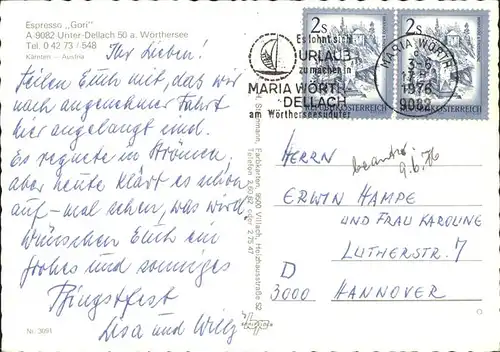 Espresso „Gori"
A 9082 Unter-Dellach 50 a. Wörthersee
Tel. 0 42 73 / 548
Kärnten – Austria
Ihr Lieben!
Teilen Euch mit, dass wir
nach angenehmer Fahrt
hier angelangt sind.
Es regnete in Strömen,
aber heute klärt es schon
auf – mal sehen, was wird.
Wünschen Euch ein
frohes und sonniges
Pfingstfest
Lisa und Willy
Nr. 3091
Farbkarten, 9500 Villach,
Telefon
Es lohnt sich
URLAUB
zu machen in
MARIA WÖRTH-
DELLACH
am Wörtherseesüdufer
2S
2S
REPUBLIK ÖSTERREICH
MARIA WÖRTH
1976
9082
HERRN
beantw. 9.6.76
ERWIN HAMPE
UND FRAU KAROLINE
LUTHERSTR. 7
D
3000 HANNOVER